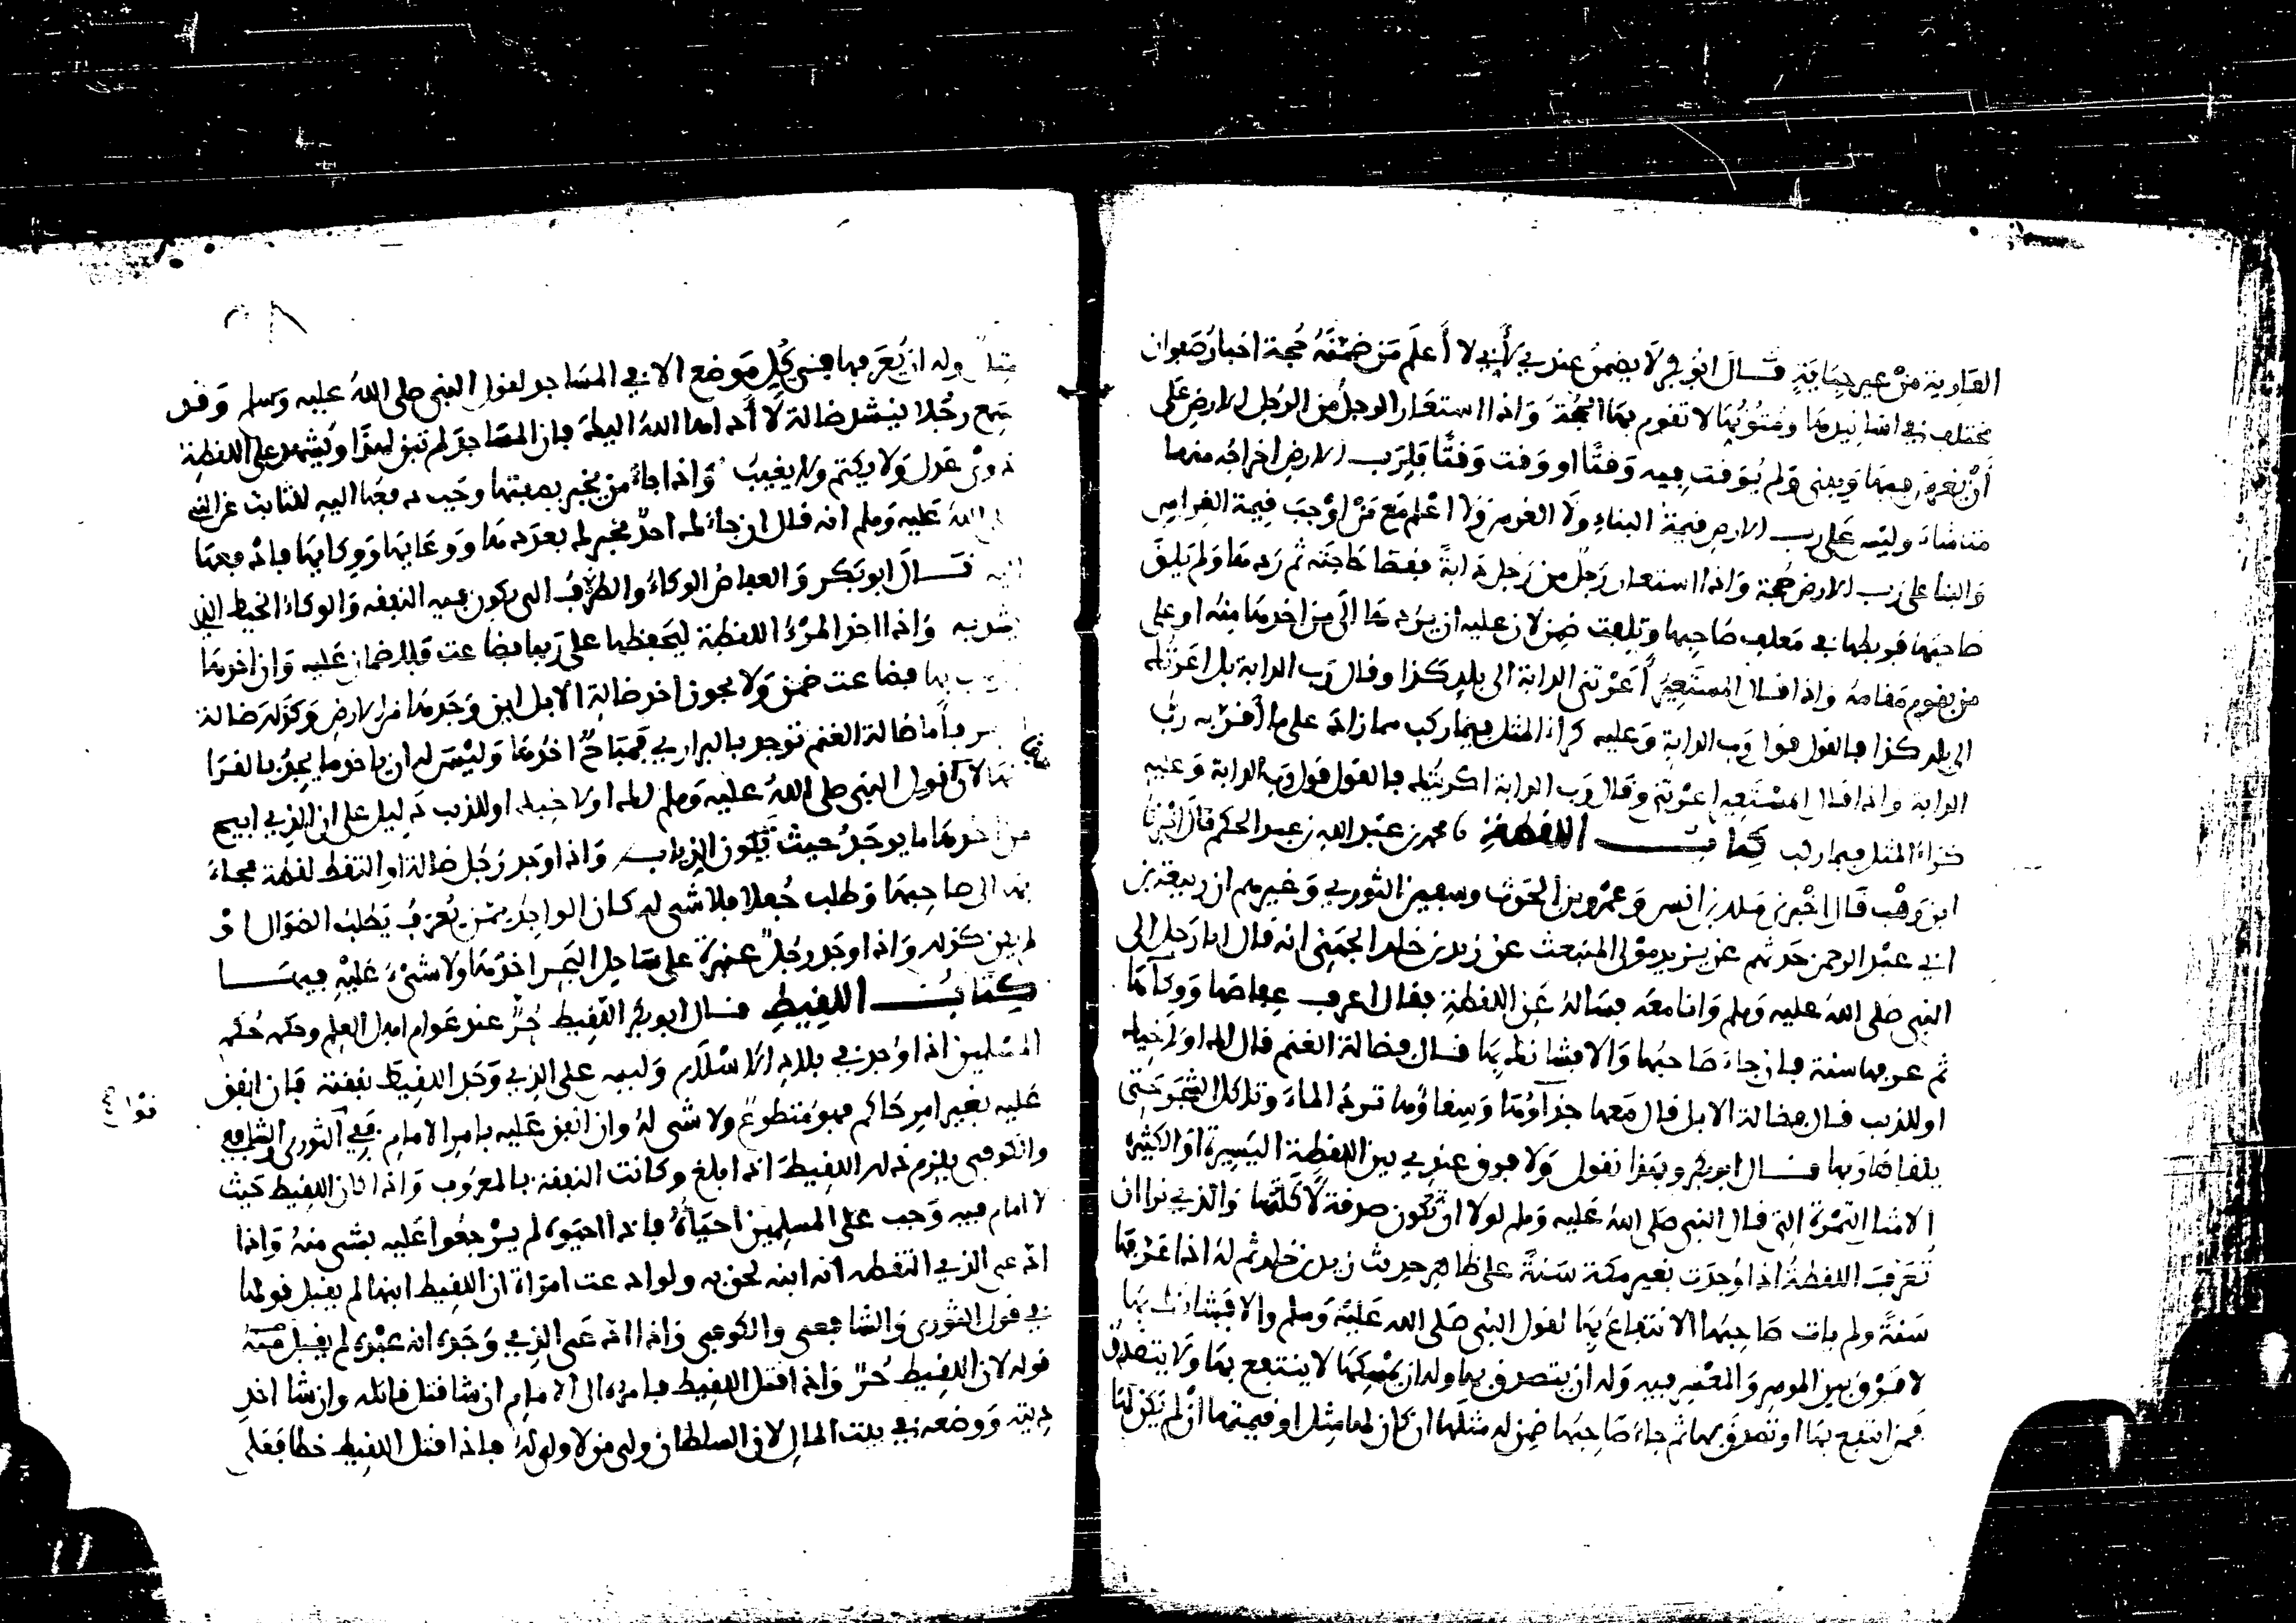 العارية من غير جناية قال أبو بكر لا يضمن عندي لأني لا أعلم مَن ضمنه حجة أخبار صفوان
مختلف في أسانيدها ومتونها لا تقوم بها الحجة وإذا استعار الرجل من الرجل الأرض على
أن يغرس فيها ويبني ولم يوقت فيه وقتا أو وقت وقتا فلرب الأرض إخراجه منها
متى شاء وليس على رب الأرض قيمة البناء ولا الغرس ولا أعلم مع من أوجب قيمة الغراس
والبنا على رب الأرض حجة وإذا استعار رجل من رجل دابة فقضا حاجته ثم ردها ولم يلق
صاحبها فربطها في معلف صاحبها وتلفت ضمن لان عليه ان يردها الى من اخذها منه او على
من يقوم مقامه وإذا قال المستعير أعرتني الدابة الى بلد كذا وقال رب الدابة بل اعرتكه
الى بلد كذا فالقول قول رب الدابة وعليه كراء المثل فيما ركب مما زاد على ما أقر به رب
الدابة وإذا قال المستعير اعرتني وقال رب الدابة اكريتكه فالقول قول رب الدابة وعليه
كراء المثل فيما ركب كتاب اللقطة نا محمد بن عبد الله بن عبد الحكم قال أخبرنا
ابن وهب قال اخبرني ملك بن انس وعمرو بن الحرث وسفين الثوري وغيرهم ان ربيعة بن
ابي عبد الرحمن حدثهم عن يزيد مولى المنبعث عن زيد بن خلد الجهني انه قال اتا رجل الى
النبي صلى الله عليه وسلم وانا معه فسأله عن اللقطة فقال اعرف عفاصها ووكاءها
ثم عرفها سنة فان جاء صاحبها والا فشانك بها قال فضالة الغنم قال لك او لأخيك
او للذيب قال فضالة الابل قال معها حذاؤها وسقاؤها ترد الماء وتاكل الشجر حتى
يلقاها ربها قال ابو بكر وبهذا نقول ولا فرق عندي بين اللقطة اليسيرة او الكثيرة
الا مثل التمرة التي قال النبي صلى الله عليه وسلم لولا ان تكون صدقة لأكلتها والذي نرا ان
تعرف اللقطة اذا وجدت بغير مكة سنة على ظاهر حديث زيد بن خلد ثم له اذا عرفها
سنة ولم يات صاحبها الانتفاع بها لقول النبي صلى الله عليه وسلم والا فشانك بها
لا فرق بين الموسر والمعسر فيه وله ان يتصدق بها وله ان يمسكها لا ينتفع بها ولا يتصدق
فمن انتفع بها او تصدق بها ثم جاء صاحبها ضمن له مثلها ان كان لها مثل او قيمتها ان لم يكن لها
وله ان يعرفها في كل موضع الا في المساجد لقول النبي صلى الله عليه وسلم وقد
سمع رجلا ينشد ضالة لا أداها الله اليك فان المساجد لم تبن لهذا ويشهد على اللقطة
ذوي عدل ولا يكتم ولا يغيب وإذا جاء من يخبر بصفتها وجب دفعها اليه للثابت عن النبي
صلى الله عليه وسلم انه قال ان جاءك احد يخبرك بعددها ووعايها ووكايها فادفعها
اليه قال ابو بكر والعفاص الوعاء والظرف التي يكون فيه النفقه والوكاء الخيط الذي
يشد به وإذا اخذ المرء اللقطة ليحفظها على ربها فضاعت فلا ضمان عليه وان اخذها
ليذهب بها فضاعت ضمن ولا يجوز اخذ ضالة الابل اين وجدها من الارض وكذلك ضالة
البقر فاما ضالة الغنم توجد بالبراري فمباح اخذها وليس له ان ياخذ ما يجد بالقرا
منها لان قول النبي صلى الله عليه وسلم لك او لاخيك او للذيب دليل على ان الذي ابيح
من اخذها ما يوجد حيث يكون الذياب وإذا وجد رجل ضالة او التقط لقطة فجاء
بها الى صاحبها وطلب جعلا فلا شي له كان الواجد ممن يعرف يطلب الضوال او
لم يكن كذلك وإذا وجد رجل عنبرة على ساحل البحر اخذها ولا شيء عليه فيها
كتاب اللقيط قال ابو بكر اللقيط حر عند عوام اهل العلم وحكمه حكم
المسلمين اذا وجد في بلاد الاسلام وليس على الذي وجد اللقيط نفقته فان انفق
عليه بغير امر حاكم فهو متطوع ولا شي له وان انفق عليه بامر الامام ففي الثوري والشافعي
والكوفي يلزم ذلك اللقيط اذا بلغ وكانت النفقة بالمعروف وإذا كان اللقيط حيث
لا امام فيه وجب على المسلمين احياؤه فاذا احيوه لم يرجعوا عليه بشي منه وإذا
ادعى الذي التقطه انه ابنه لحق به ولو ادعت امراة ان اللقيط ابنها لم يقبل قولها
في قول الثوري والشافعي والكوفي وإذا ادعى الذي وجده انه عبده لم يقبل منه
قوله لان اللقيط حر وإذا قتل اللقيط فامره الى الامام ان شا قتل قاتله وان شا اخذ
ديته ووضعه في بيت المال لان السلطان ولي من لا ولي له فاذا قتل اللقيط خطا فعلى